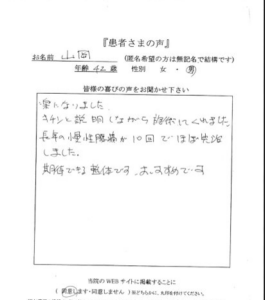 『患者さまの声』
お名前 山岡 (匿名希望の方は無記名で結構です)
年齢 42 歳 性別 女・男
皆様の喜びの声をお聞かせ下さい
楽になりました。
キチンと説明しながら施術してくれました。
長年の慢性腰痛が10回でほぼ完治
しました。
期待できる整体です。おすすめです
当院のWEBサイトに掲載することに
(同意します・同意しません)